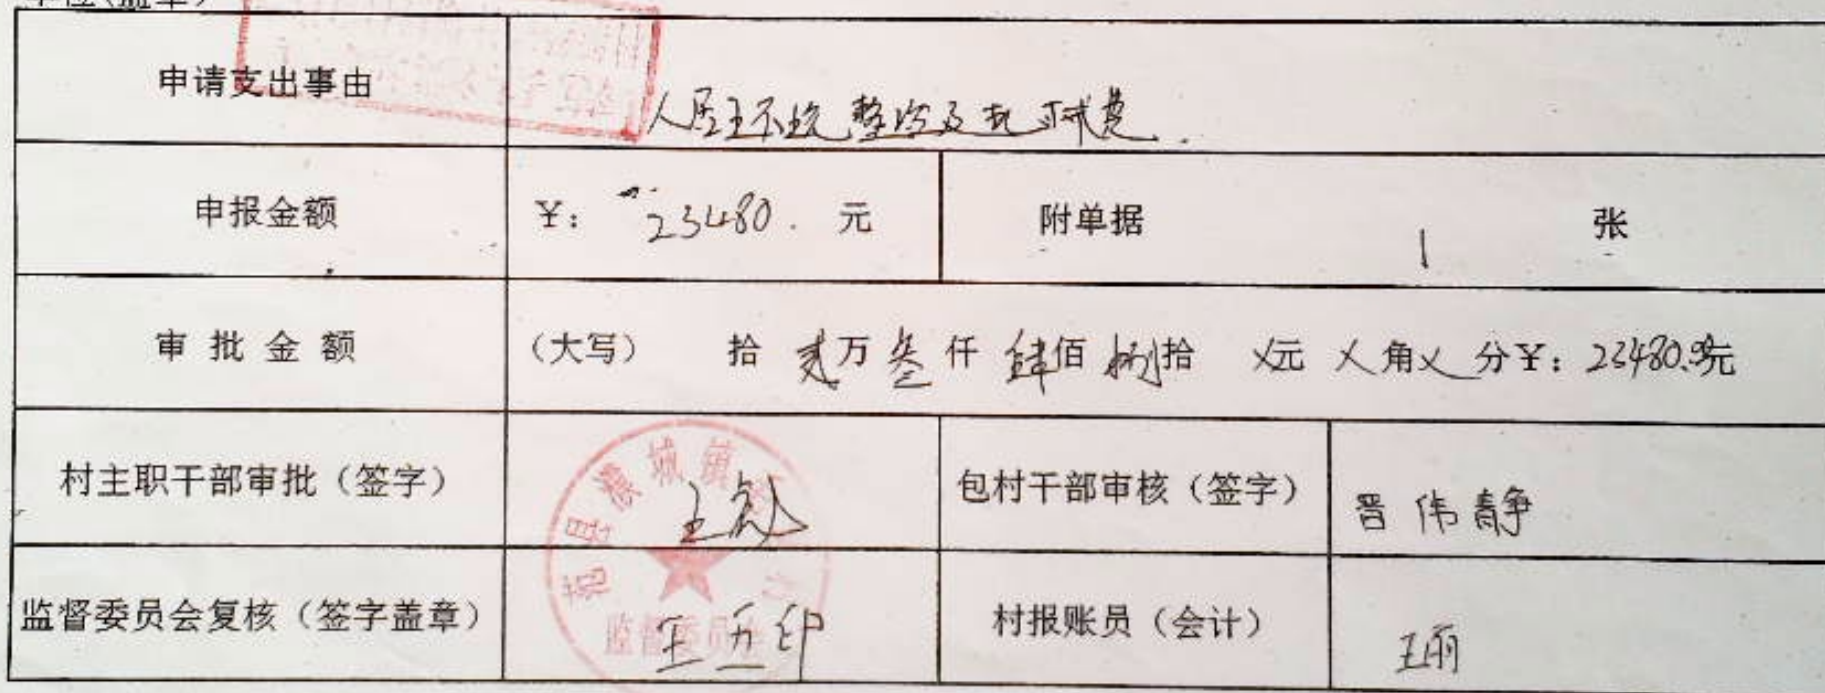 单位(盖章)
申请支出事由
人居环境整治及机械费.
申报金额 ¥: 23480. 元 附单据 1 张
审批金额 (大写) 拾 贰万叁仟肆佰捌拾 X元 X角X分¥: 23480.00元
村主职干部审批(签字) 包村干部审核(签字) 晋伟静
县濮城镇
监督委员会复核(签字盖章) 王五印 村报账员(会计) 王丽
监督委员会